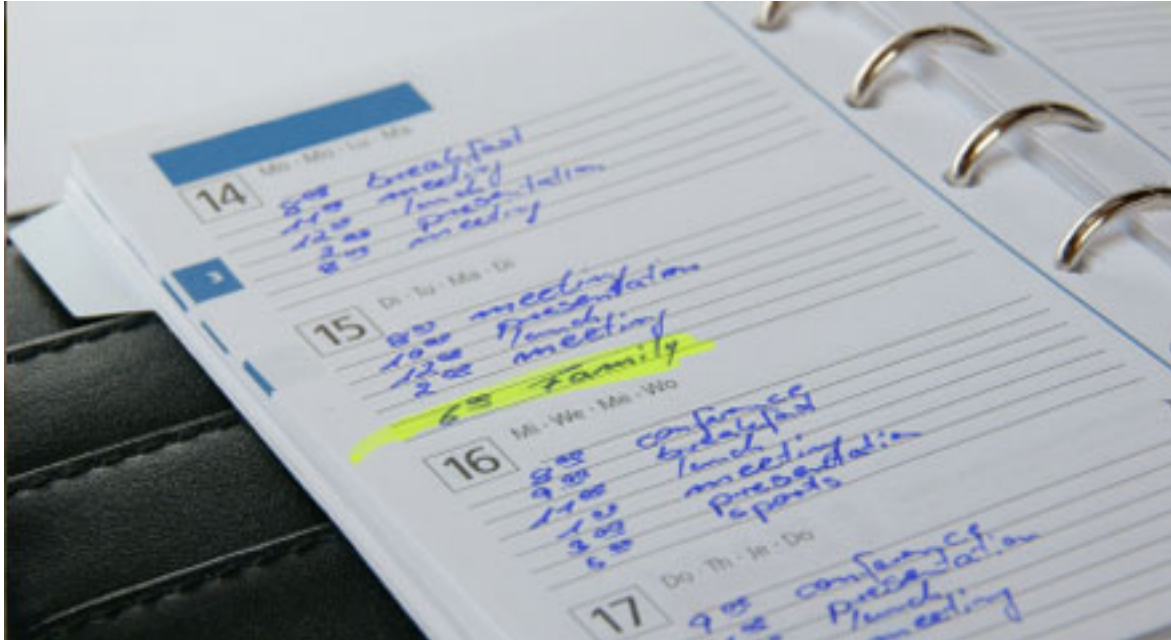 Mo · Mo · Lu · Ma
14
8⁰⁰ breakfast
11⁰⁰ meeting
12⁰⁰ lunch
2⁰⁰ presentation
8⁰⁰ meeting
3
Di · Tu · Ma · Di
15
8⁰⁰ meeting
10⁰⁰ presentation
12⁰⁰ lunch
2⁰⁰ meeting
6⁰⁰ Family
Mi · We · Me · Wo
16
8⁰⁰ conference
9⁰⁰ breakfast
11⁰⁰ lunch
1⁰⁰ meeting
3⁰⁰ presentation
6⁰⁰ sports
Do · Th · Je · Do
17
9⁰⁰ conference
presentation
lunch
meeting